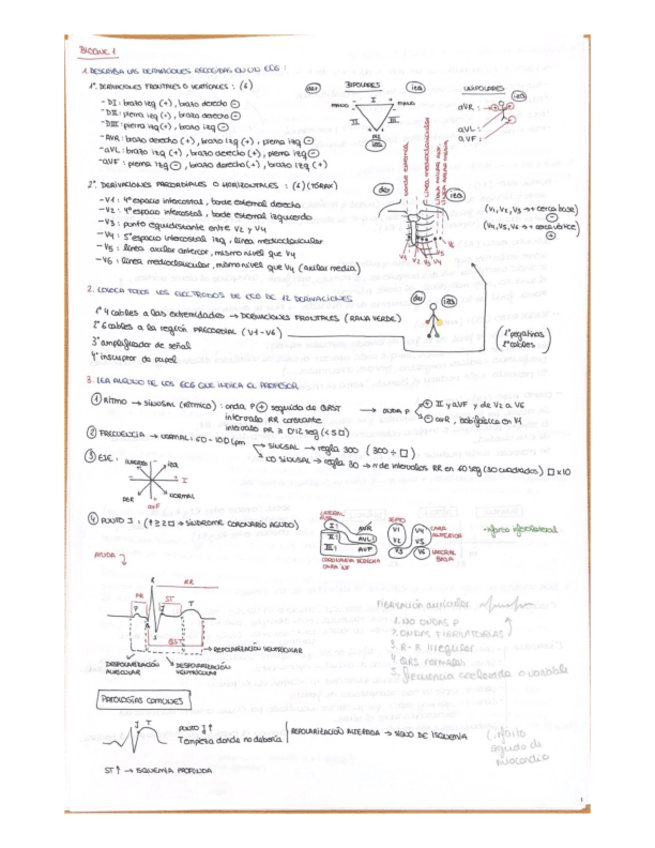 BLOQUE 1
1. DESCRIBA LAS DERIVACIONES RECOGIDAS EN UN ECG:
1º. DERIVACIONES FRONTALES O VERTICALES: (6)
- DI: brazo izq (+), brazo derecho ⊖
- DII: pierna izq (+), brazo derecho ⊖
- DIII: pierna izq (+), brazo izq ⊖
- AVR: brazo derecho (+), brazo izq (+), pierna izq ⊖
- aVL: brazo izq (+), brazo derecho (+), pierna izq ⊖
- aVF: pierna izq ⊖, brazo derecho (+), brazo izq (+)
der BIPOLARES izq
MANO I MANO
II III
PIE
izq
UNIPOLARES
izq
aVR:
aVL:
aVF:
2º. DERIVACIONES PRECORDIALES O HORIZONTALES: (6) (TÓRAX)
- V1: 4º espacio intercostal, borde external derecho
- V2: 4º espacio intercostal, borde external izquierdo
- V3: punto equidistante entre V2 y V4
- V4: 5º espacio intercostal izq, línea medioclavicular
- V5: línea axilar anterior, mismo nivel que V4
- V6: línea medioclavicular, mismo nivel que V4 (axilar media)
borde external
línea medioclavicular
der
izq
V1 V2 V3 V4 V5 V6
(V1, V2, V3 → + cerca base)
⊖
(V4, V5, V6 → + cerca vértice)
⊕
2. COLOCA TODOS LOS ELECTRODOS DE ECG DE 12 DERIVACIONES
1º 4 cables a las extremidades → DERIVACIONES FRONTALES (RANA VERDE)
2º 6 cables a la región PRECORDIAL (V1-V6)
3º amplificador de señal
4º inscriptor de papel
der izq
1º negativas
2º cables
3. LEA ALGUNO DE LOS ECG QUE INDICA EL PROFESOR
① RITMO → SINUSAL (RÍTMICO): onda P ⊕ seguida de QRST
intervalo RR constante
intervalo PR ≥ 0'12 seg (<5□)
→ ONDA P
⊕ II y aVF y de V2 a V6
⊖ aVR, bifásica en V1
② FRECUENCIA → NORMAL: 60-100 lpm
→ SINUSAL → regla 300 (300 ÷ □)
→ NO SINUSAL → regla 30 → nº de intervalos RR en 60 seg (30 cuadrados) □x10
③ EJE:
izq
I
DER
NORMAL
aVF
④ PUNTO J: (↑ ≥ 2□ → SÍNDROME CORONARIO AGUDO)
LATERAL ALTA
I: AVR
II: AVL:
III: AVF
SEPTO
V1 V4
V2 V5
V3 V6
CARA ANTERIOR
LATERAL BAJA
AYUDA
R
RR
PR
ST
P
J
T
QST
→ REPOLARIZACIÓN VENTRICULAR
DESPOLARIZACIÓN AURICULAR
DESPOLARIZACIÓN VENTRICULAR
FIBRILACIÓN auricular
1. NO ONDAS P
2. ONDAS FIBRILATORIAS
3. R-R irregular
4. QRS normales
5. frecuencia acelerada o variable
PATOLOGÍAS COMUNES
J T
PUNTO J ↑
T empieza donde no debería
REPOLARIZACIÓN ALTERADA → SIGNO DE ISQUEMIA
(infarto agudo de miocardio
ST ↑ → ISQUEMIA PROFUNDA
1